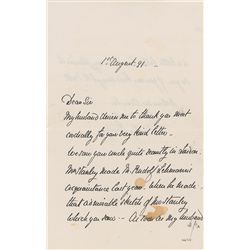 1st August 91.
Dear Sir
My husband desires me to thank you most
cordially for your very kind letter.
we saw your uncle quite recently in London.
Mr Stanley made Mr Rudolf Lehmann's
acquaintance last year. When he made
that admirable sketch of Mr Stanley
which you saw – As soon as my husband